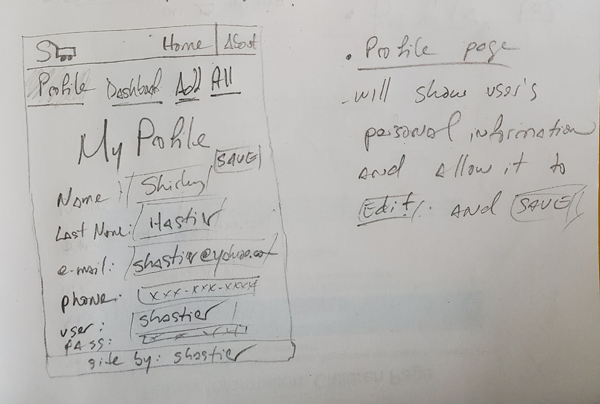 S Home About
Profile Dashboad Add All
My Profile
SAVE
Name: Shirley
Last Name: Hastier
e-mail: shastier@yahoo.com
phone: xxx-xxx-xxxx
user: shastier
pass:
site by: shastier
. Profile page
- will show user's
personal information
AND Allow it to
Edit. AND SAVE